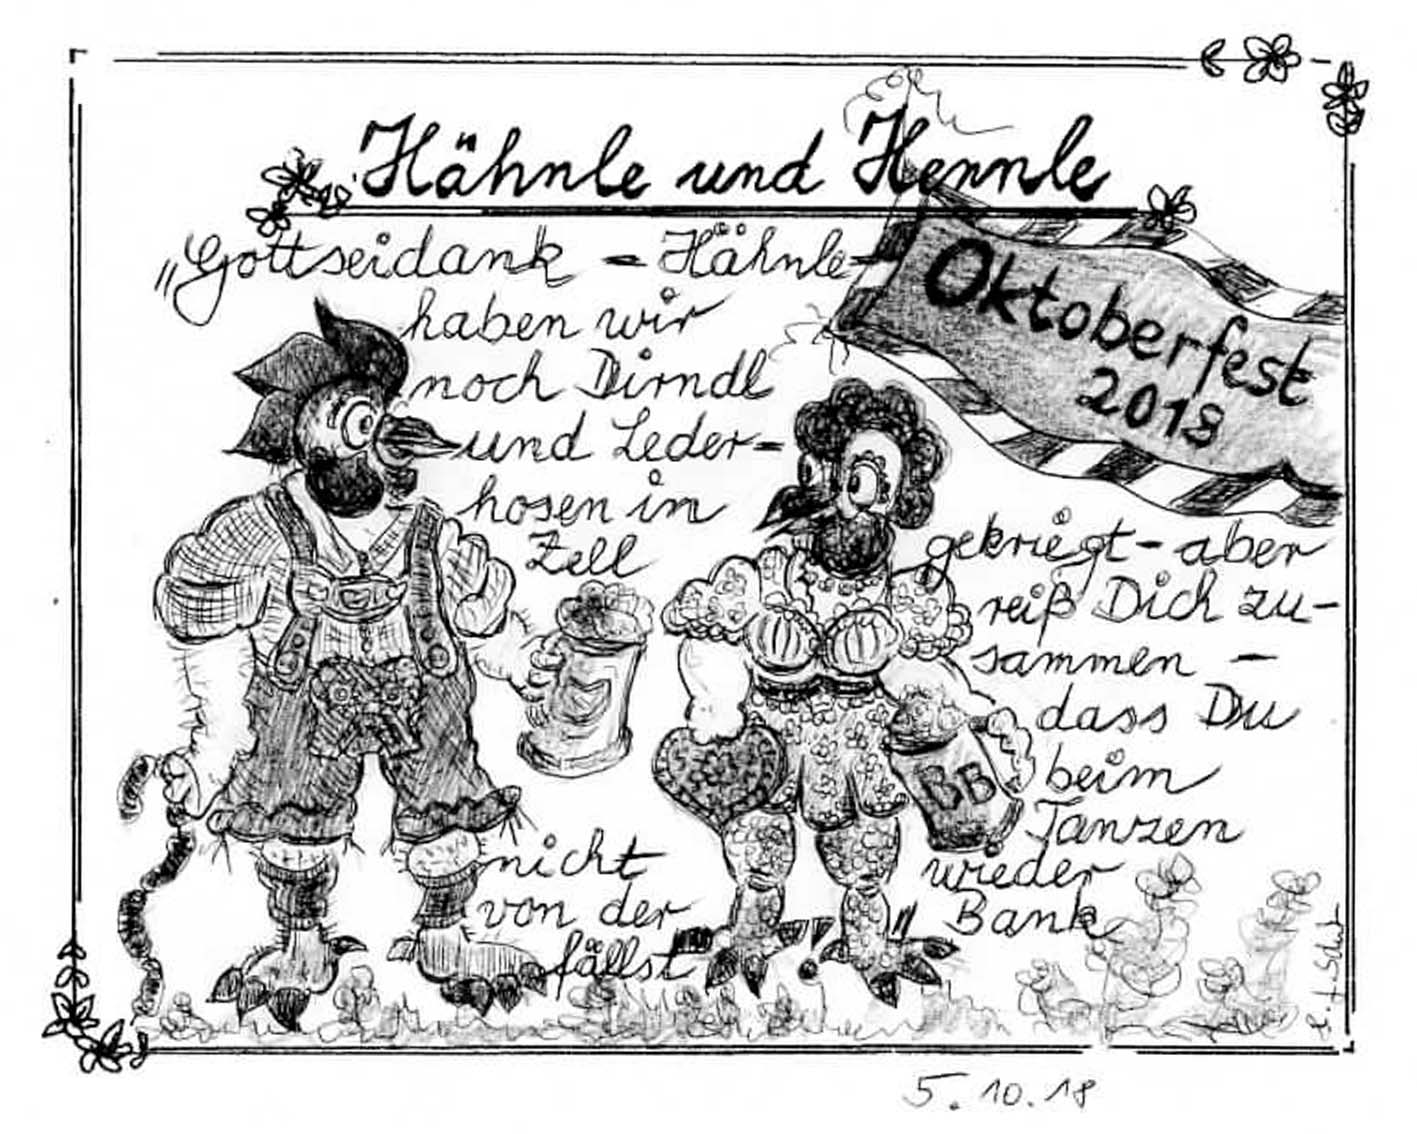 Hähnle und Hennle
„Gottseidank – Hähnle –
haben wir
noch Dirndl
und Leder-
hosen in
Zell
gekriegt – aber
reiß Dich zu-
sammen –
dass Du
beim
Tanzen
wieder
nicht
von der
Bank
fällst!"
Oktoberfest
2018
BB
5.10.18